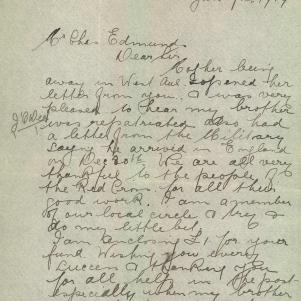 Mr Chas Edmunds
Dear Sir
Mother being
away in West Aus. I opened her
letter from you. I was very
pleased to hear my brother
was repatriated also had
a letter from the Military
saying he arrived in England
on Dec 30th We are all very
thankful to the people of
the Red Cross for all their
good work. I am a member
of our local circle & try &
do my little bit
I am enclosing £1 for your
fund Wishing you every
success & thanking you
for all help in the past
especially when my brother